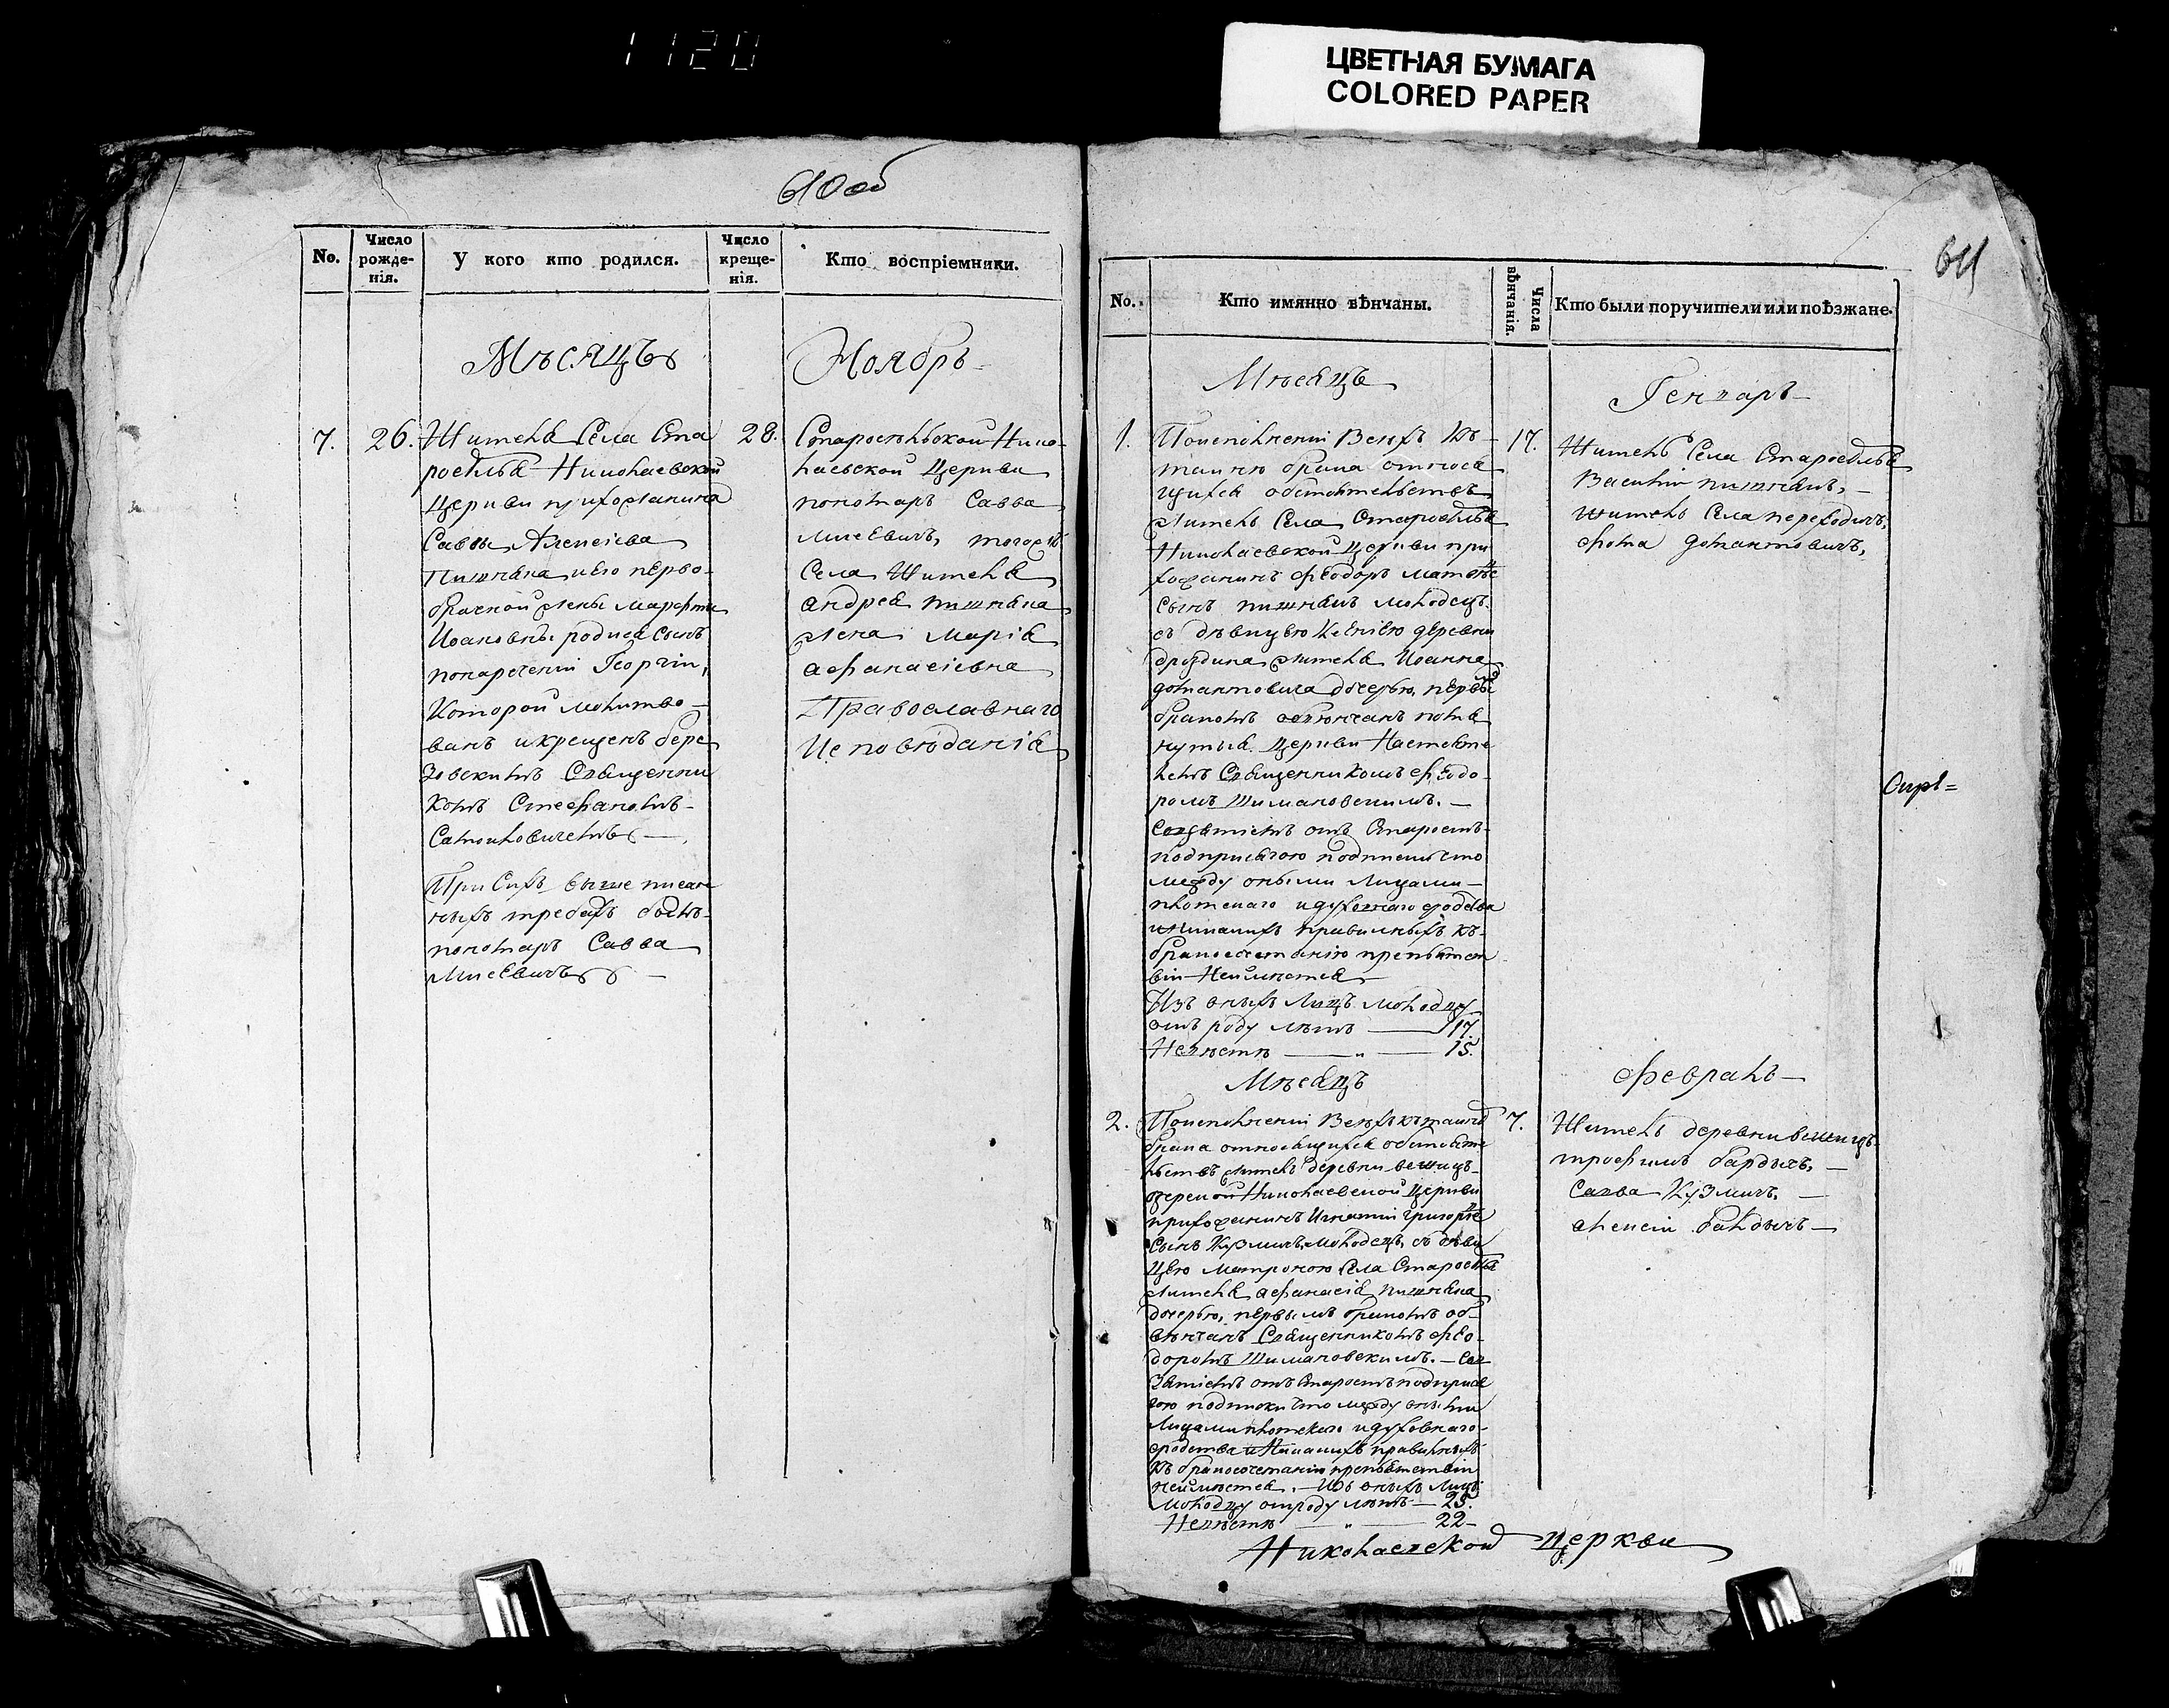 1120
ЦВЕТНАЯ БУМАГА
COLORED PAPER
610об
No.
Число рожде-нія.
У кого кто родился.
Число креще-нія.
Кто воспріемники.
Мѣсяцъ
Ноябрь
7. 26. 28.
Жителя Села Ста
росѣлья Николаевской
Церкви прихожанина
Саввы Алексіева
Пишняка и его перво-
брачной жены Марфы
Иоановны родися сынъ
понаречении Георгій,
Которой молитво-
ванъ и крещенъ бере
зовскимъ Священни
комъ Стефаномъ
При Сихъ выше писан
ныхъ требахъ былъ
пономаръ Савва
Старосѣльской Нико-
лаевской Церкви
пономаръ Савва
тогожъ
Села Жителя
андрея пишняка
жена Марія
афанасіевна
Православнаго
Исповѣданія
61
No.
Кто имянно вѣнчаны.
Числа вѣнчанія.
Кто были поручители или поѣзжане.
Мѣсяцъ
Генварь
1. 17.
Поисполненіи Всѣхъ къ
таинству брака относя
щихся обстоятельствъ
житель Села Старосѣлья
Николаевской Церкви при
хожанинъ Феодоръ
сынъ пишнякъ молодецъ
съ дѣвицею Ксеніею деревни
дроздина жителя Иоанна
домантовича дочерью, первы
бракомъ обвѣнчанъ помя
нутыя Церкви Настояте
лемъ Священникомъ Феодо-
ромъ Шимановскимъ.
отъ Старостъ
подприсягою что
между оными Лицами
плотскаго и духовнаго сродства
и никакихъ правильныхъ къ
бракосочетанію препятст
вій Неимѣется
Изъ оныхъ Лицъ молодцу
отъ роду лѣтъ 17.
Невѣстѣ " 15.
Житель Села Старосѣлья
Василій пишнякъ,
житель Села переходичъ,
фома домантовичъ,
Мѣсяцъ
Февраль
2. 7.
Поисполненіи Всѣхъ къ
брака относящихся обстояте
льствъ житель деревни
Николаевской Церкви
прихожанинъ Игнатій
сынъ Кузмичъ молодецъ съ дѣви
цею Матроною Села Старосѣлья
жителя афанасія пишняка
дочерью, первымъ бракомъ об-
вѣнчанъ Священникомъ Фео-
доромъ Шимановскимъ.
отъ Старостъ подприся
гою что между оными
Лицами плотскаго и духовнаго
сродства и Никакихъ правильныхъ
къ бракосочетанію препятствій
неимѣется. Изъ оныхъ Лицъ
молодцу отроду лѣтъ 25.
Невѣстѣ " 22
Житель деревни
трофимъ бардыхъ,
Савва Кузмичъ.
алексій
Николаевской Церкви